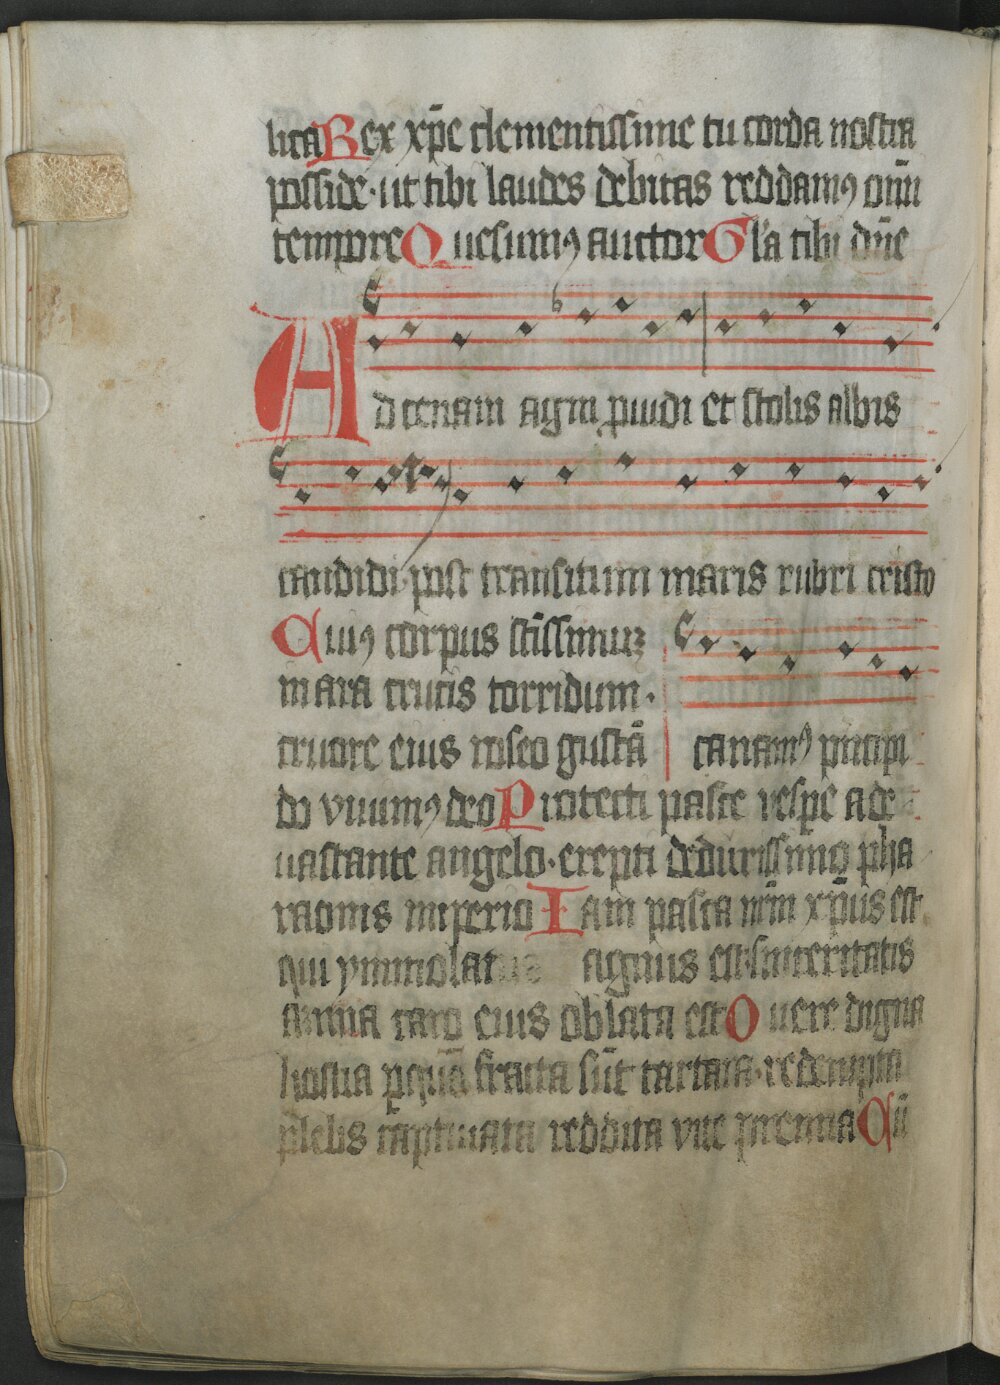 lica Rex xp̄e clementissime tu corda nostra
posside · ut tibi laudes debitas reddamꝯ oīni
tempore Quesumꝯ auctor Gl'a tibi dn̄e
Ad cenam agni ꝓuidi et stolis albis
candidi · post transitum maris rubri cristo
Cuiꝯ corpus sc̄issimuꝫ
in ara crucis torridum ·
canamꝯ principi
cruore eius roseo gustā
do viuimꝯ deo Protecti pasce vesꝑe a de
uastante angelo · erepti de durissimo pha
raonis imperio Iam pasca nr̄m xp̄us est
qui ymmolatus agnus est · sinceritatis
azima caro eius oblata est O uere digna
hostia ꝑ quā fracta sūt tartara · redempta
plebs captiuata reddita vite premia Cū